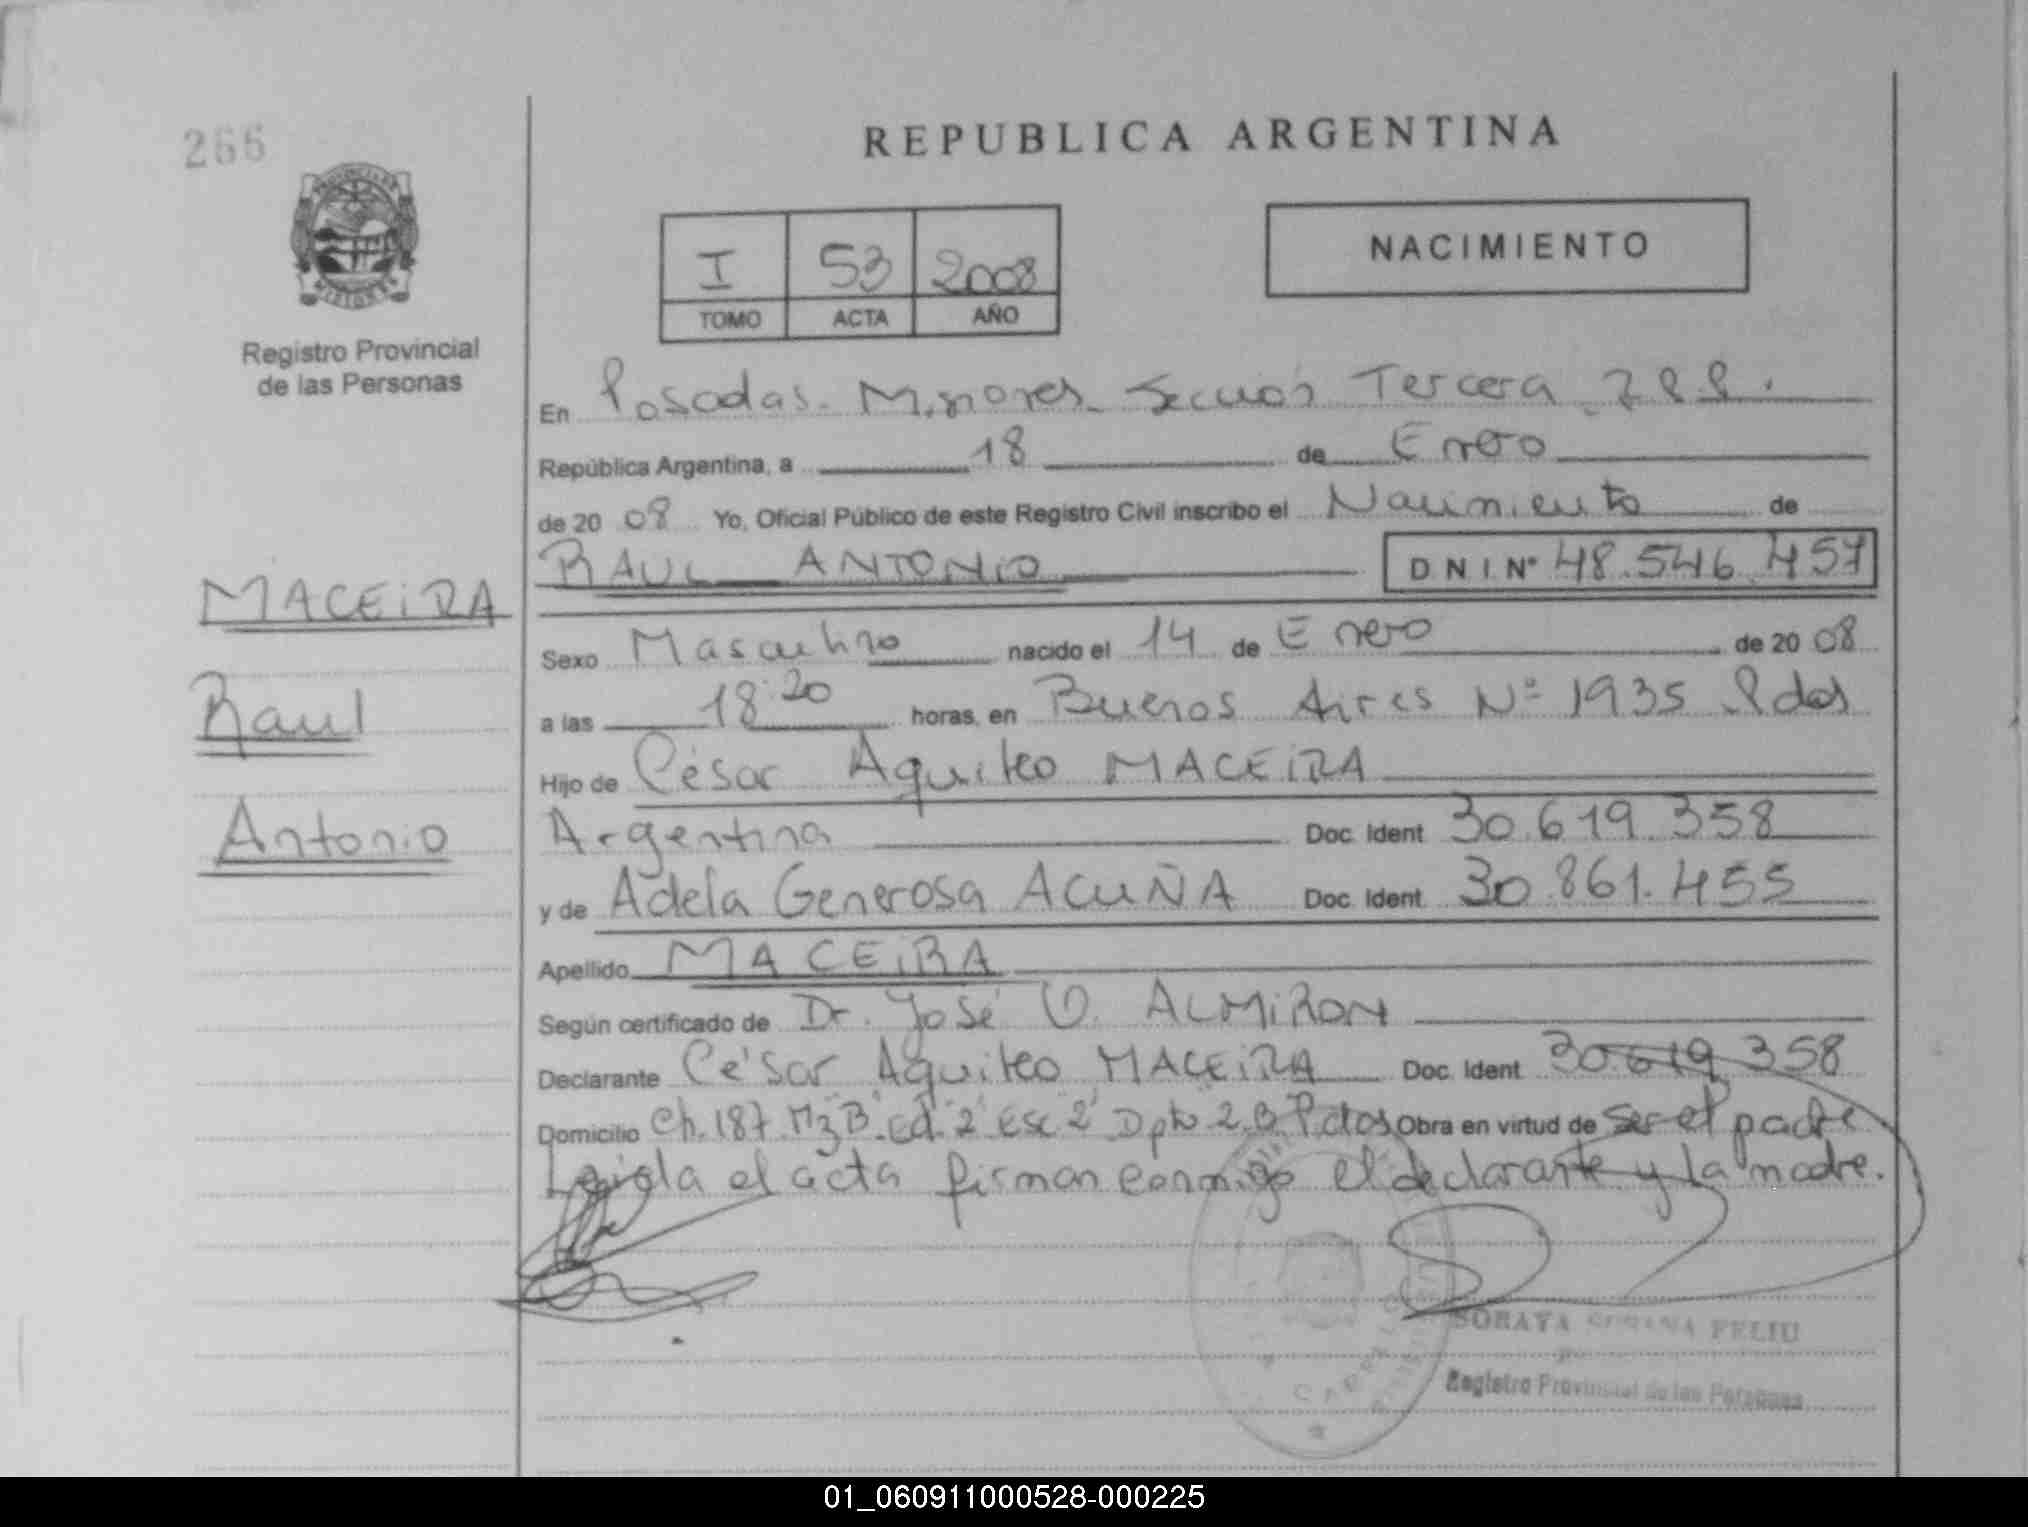 266
REPUBLICA ARGENTINA
NACIMIENTO
I 53 2008
TOMO ACTA AÑO
PROVINCIA DE
MISIONES
Registro Provincial
de las Personas
En Posadas. Misiones. Sección Tercera
República Argentina, a 18 de Enero
de 20 08 Yo, Oficial Público de este Registro Civil inscribo el Nacimiento de
RAUL ANTONIO D N I Nº 48.546.457
MACEiRA
Sexo Masculino nacido el 14 de Enero de 20 08
Raul
a las 18:20 horas, en Buenos Aires Nº 1935 Pdas
Hijo de César Aquileo MACEiRA
Antonio
Argentina Doc. Ident 30.619.358
y de Adela Generosa ACUÑA Doc. Ident. 30.861.455
Apellido MACEiRA
Según certificado de Dr. José O. ALMiRON
Declarante César Aquileo MACEiRA Doc. Ident 30.619.358
Domicilio Ch. 187 Mz "B" Ed. "2" Esc "2" Dpto 2.B Pdas Obra en virtud de Ser el padre
Leida el acta firman conmigo el declarante y la madre.
SORAYA SUSANA FELIU
Registro Provincial de las Personas
01_060911000528-000225